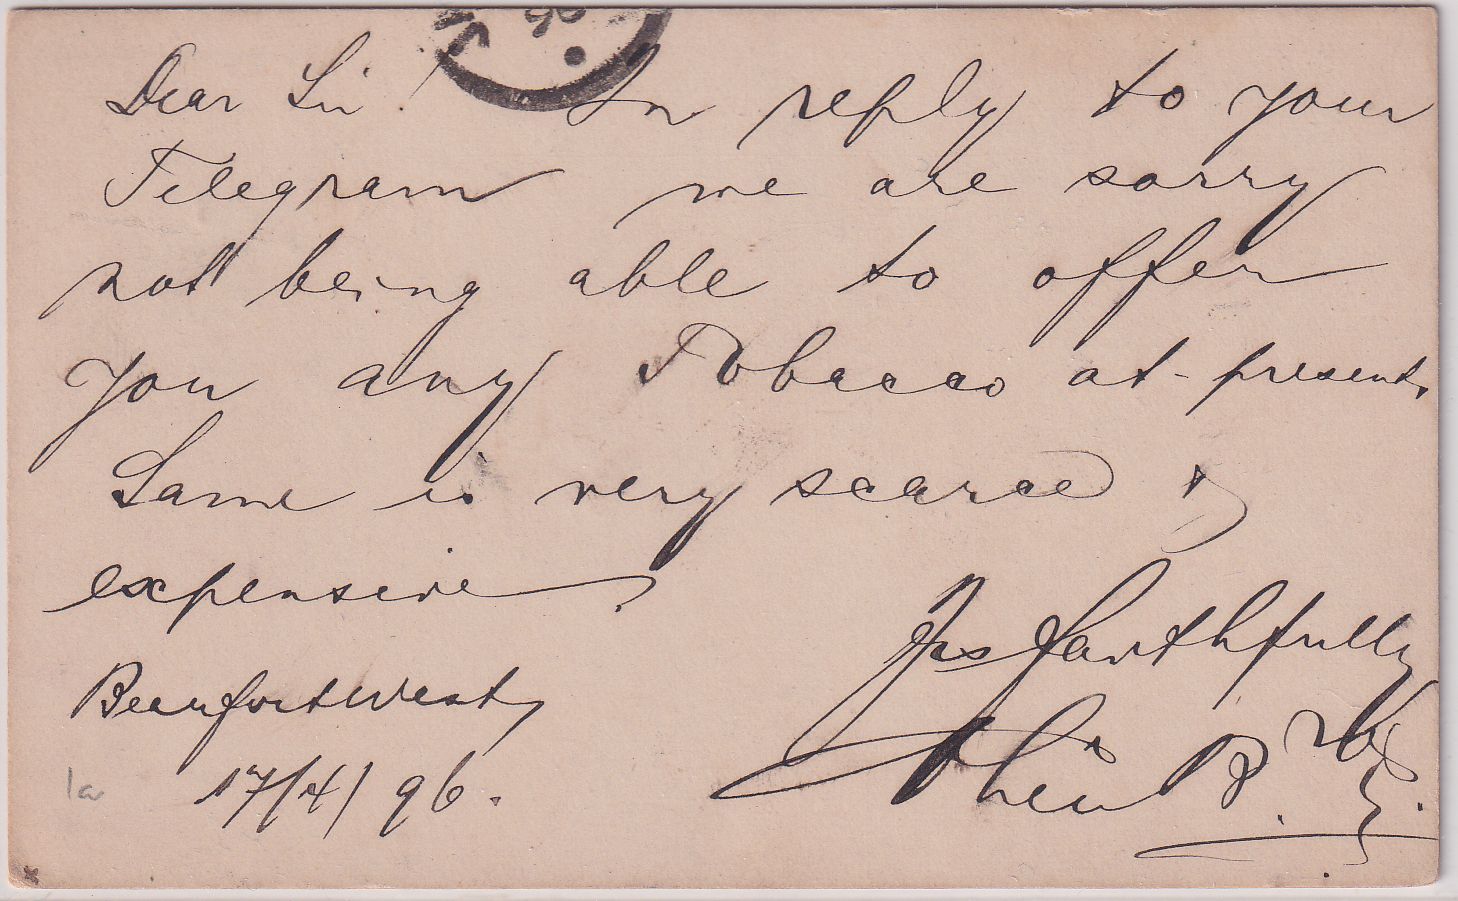 96
Dear Sir! In reply to your
Telegram we are sorry
not being able to offer
you any Tobacco at present.
Same is very scarce &
expensive.
Yrs faithfully
Beaufort West,
17/4/96.